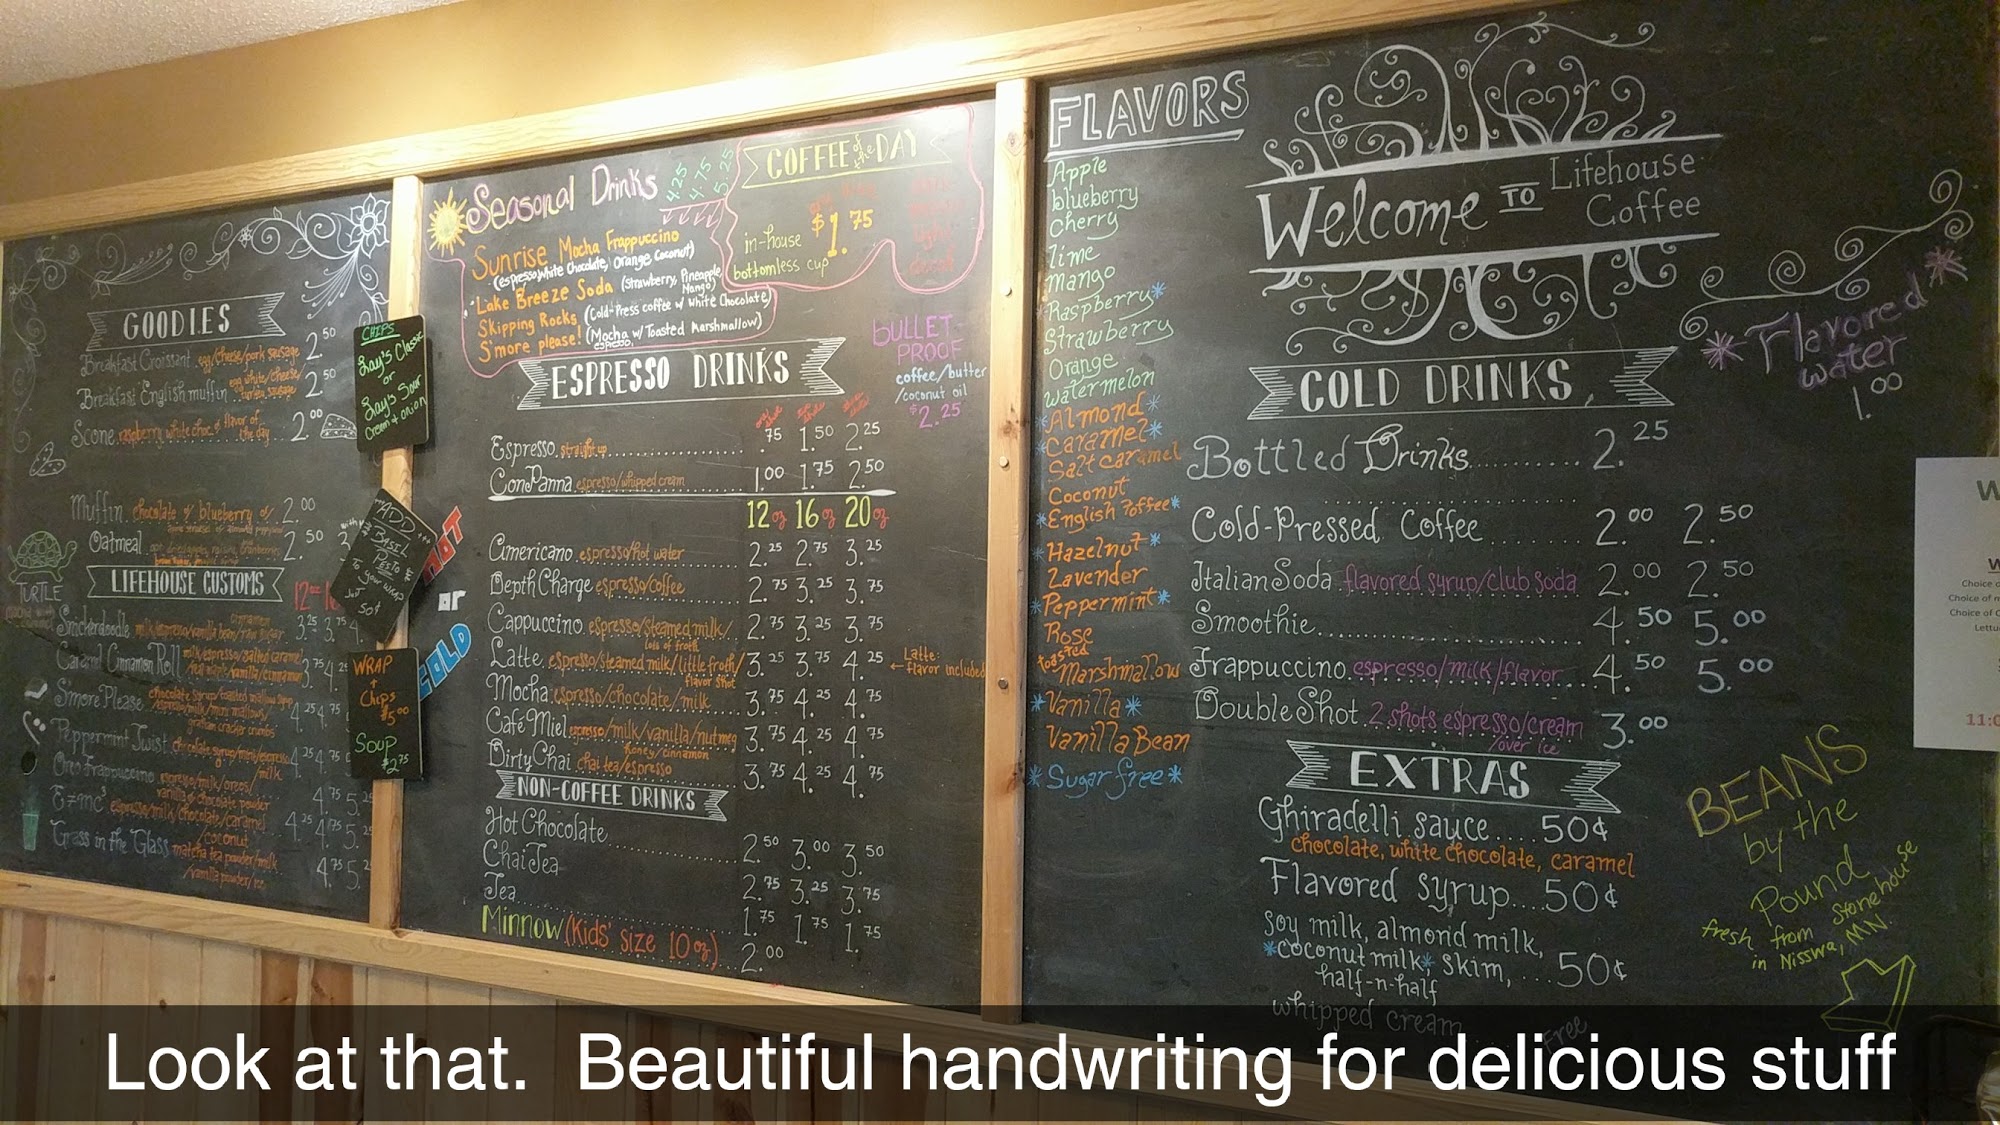 GOODIES
Breakfast Croissant egg/cheese/pork sausage 2.50
Breakfast English muffin egg white/cheese/turkey sausage 2.50
Scone raspberry white choc. / flavor of the day 2.00
Muffin chocolate or blueberry or 2.00
Oatmeal 2.50
TURTLE
LIFEHOUSE CUSTOMS 12oz
Snickerdoodle milk/espresso/vanilla bean/raw sugar cinnamon 3.25 3.75
Caramel Cinnamon Roll milk/espresso/salted caramel 3.75
S'more Please chocolate syrup/toasted mallow syrup
/espresso/milk/mini mallows/
graham cracker crumbs 4.25 4.75
Peppermint Twist chocolate syrup/mint/espresso
/milk 4.25 4.75
Oreo Frappuccino espresso/milk/oreos/
vanilla & chocolate powder 4.75 5.25
E=mc³ espresso/milk/chocolate/caramel
/coconut 4.25 4.75 5.25
Grass in the Glass matcha tea powder/milk
/vanilla powder/ice 4.75 5.
CHIPS
Lay's Classic
or
Lay's Sour
Cream & onion
ADD
BASIL
PESTO
To your WRAP
50¢
HOT
or
COLD
WRAP
+
Chips
$5.00
SOUP
$2.75
Seasonal Drinks 4.25 4.75 5.25
Sunrise Mocha Frappuccino
(espresso, White Chocolate, Orange, Coconut)
Lake Breeze Soda (Strawberry, Pineapple, Mango)
Skipping Rocks (Cold-Press coffee w/ White Chocolate)
S'more please! (Mocha w/ Toasted Marshmallow)
espresso
COFFEE of the DAY
in-house
bottomless cup $1.75
BULLET PROOF
coffee/butter
/coconut oil
$2.25
ESPRESSO DRINKS
Espresso straight up .75 1.50 2.25
Con Panna espresso/whipped cream 1.00 1.75 2.50
12oz 16oz 20oz
Americano espresso/hot water 2.25 2.75 3.25
Depth Charge espresso/coffee 2.75 3.25 3.75
Cappuccino espresso/steamed milk/
lots of froth 2.75 3.25 3.75
Latte espresso/steamed milk/little froth/
flavor shot 3.25 3.75 4.25 ← Latte: flavor included
Mocha espresso/chocolate/milk 3.75 4.25 4.75
Café Miel espresso/milk/vanilla/nutmeg
honey/cinnamon 3.75 4.25 4.75
Dirty Chai chai tea/espresso 3.75 4.25 4.75
NON-COFFEE DRINKS
Hot Chocolate 2.50 3.00 3.50
Chai Tea 2.75 3.25 3.75
Tea 1.75 1.75 1.75
Minnow (Kids' size 10 oz) 2.00
FLAVORS
Apple
blueberry
Cherry
lime
Mango
Raspberry*
Strawberry
Orange
watermelon
*Almond*
*Caramel*
Salt Caramel
Coconut
*English Toffee*
*Hazelnut*
Lavender
*Peppermint*
Rose
toasted
Marshmallow
*Vanilla*
Vanilla Bean
*Sugar free*
Welcome TO Lifehouse Coffee
COLD DRINKS
Bottled Drinks 2.25
Cold-Pressed Coffee 2.00 2.50
Italian Soda flavored syrup/club soda 2.00 2.50
Smoothie 4.50 5.00
Frappuccino espresso/milk/flavor 4.50 5.00
Double Shot 2 shots espresso/cream
/over ice 3.00
EXTRAS
Ghiradelli sauce....50¢
chocolate, white chocolate, caramel
Flavored syrup....50¢
Soy milk, almond milk,
*coconut milk*, skim, ...50¢
half-n-half
whipped cream Free
*Flavored*
water
1.00
BEANS
by the
Pound
fresh from Stonehouse
in Nisswa, MN.
W
Choice o
Choice of m
Choice of C
Lettu
11:0
Look at that. Beautiful handwriting for delicious stuff